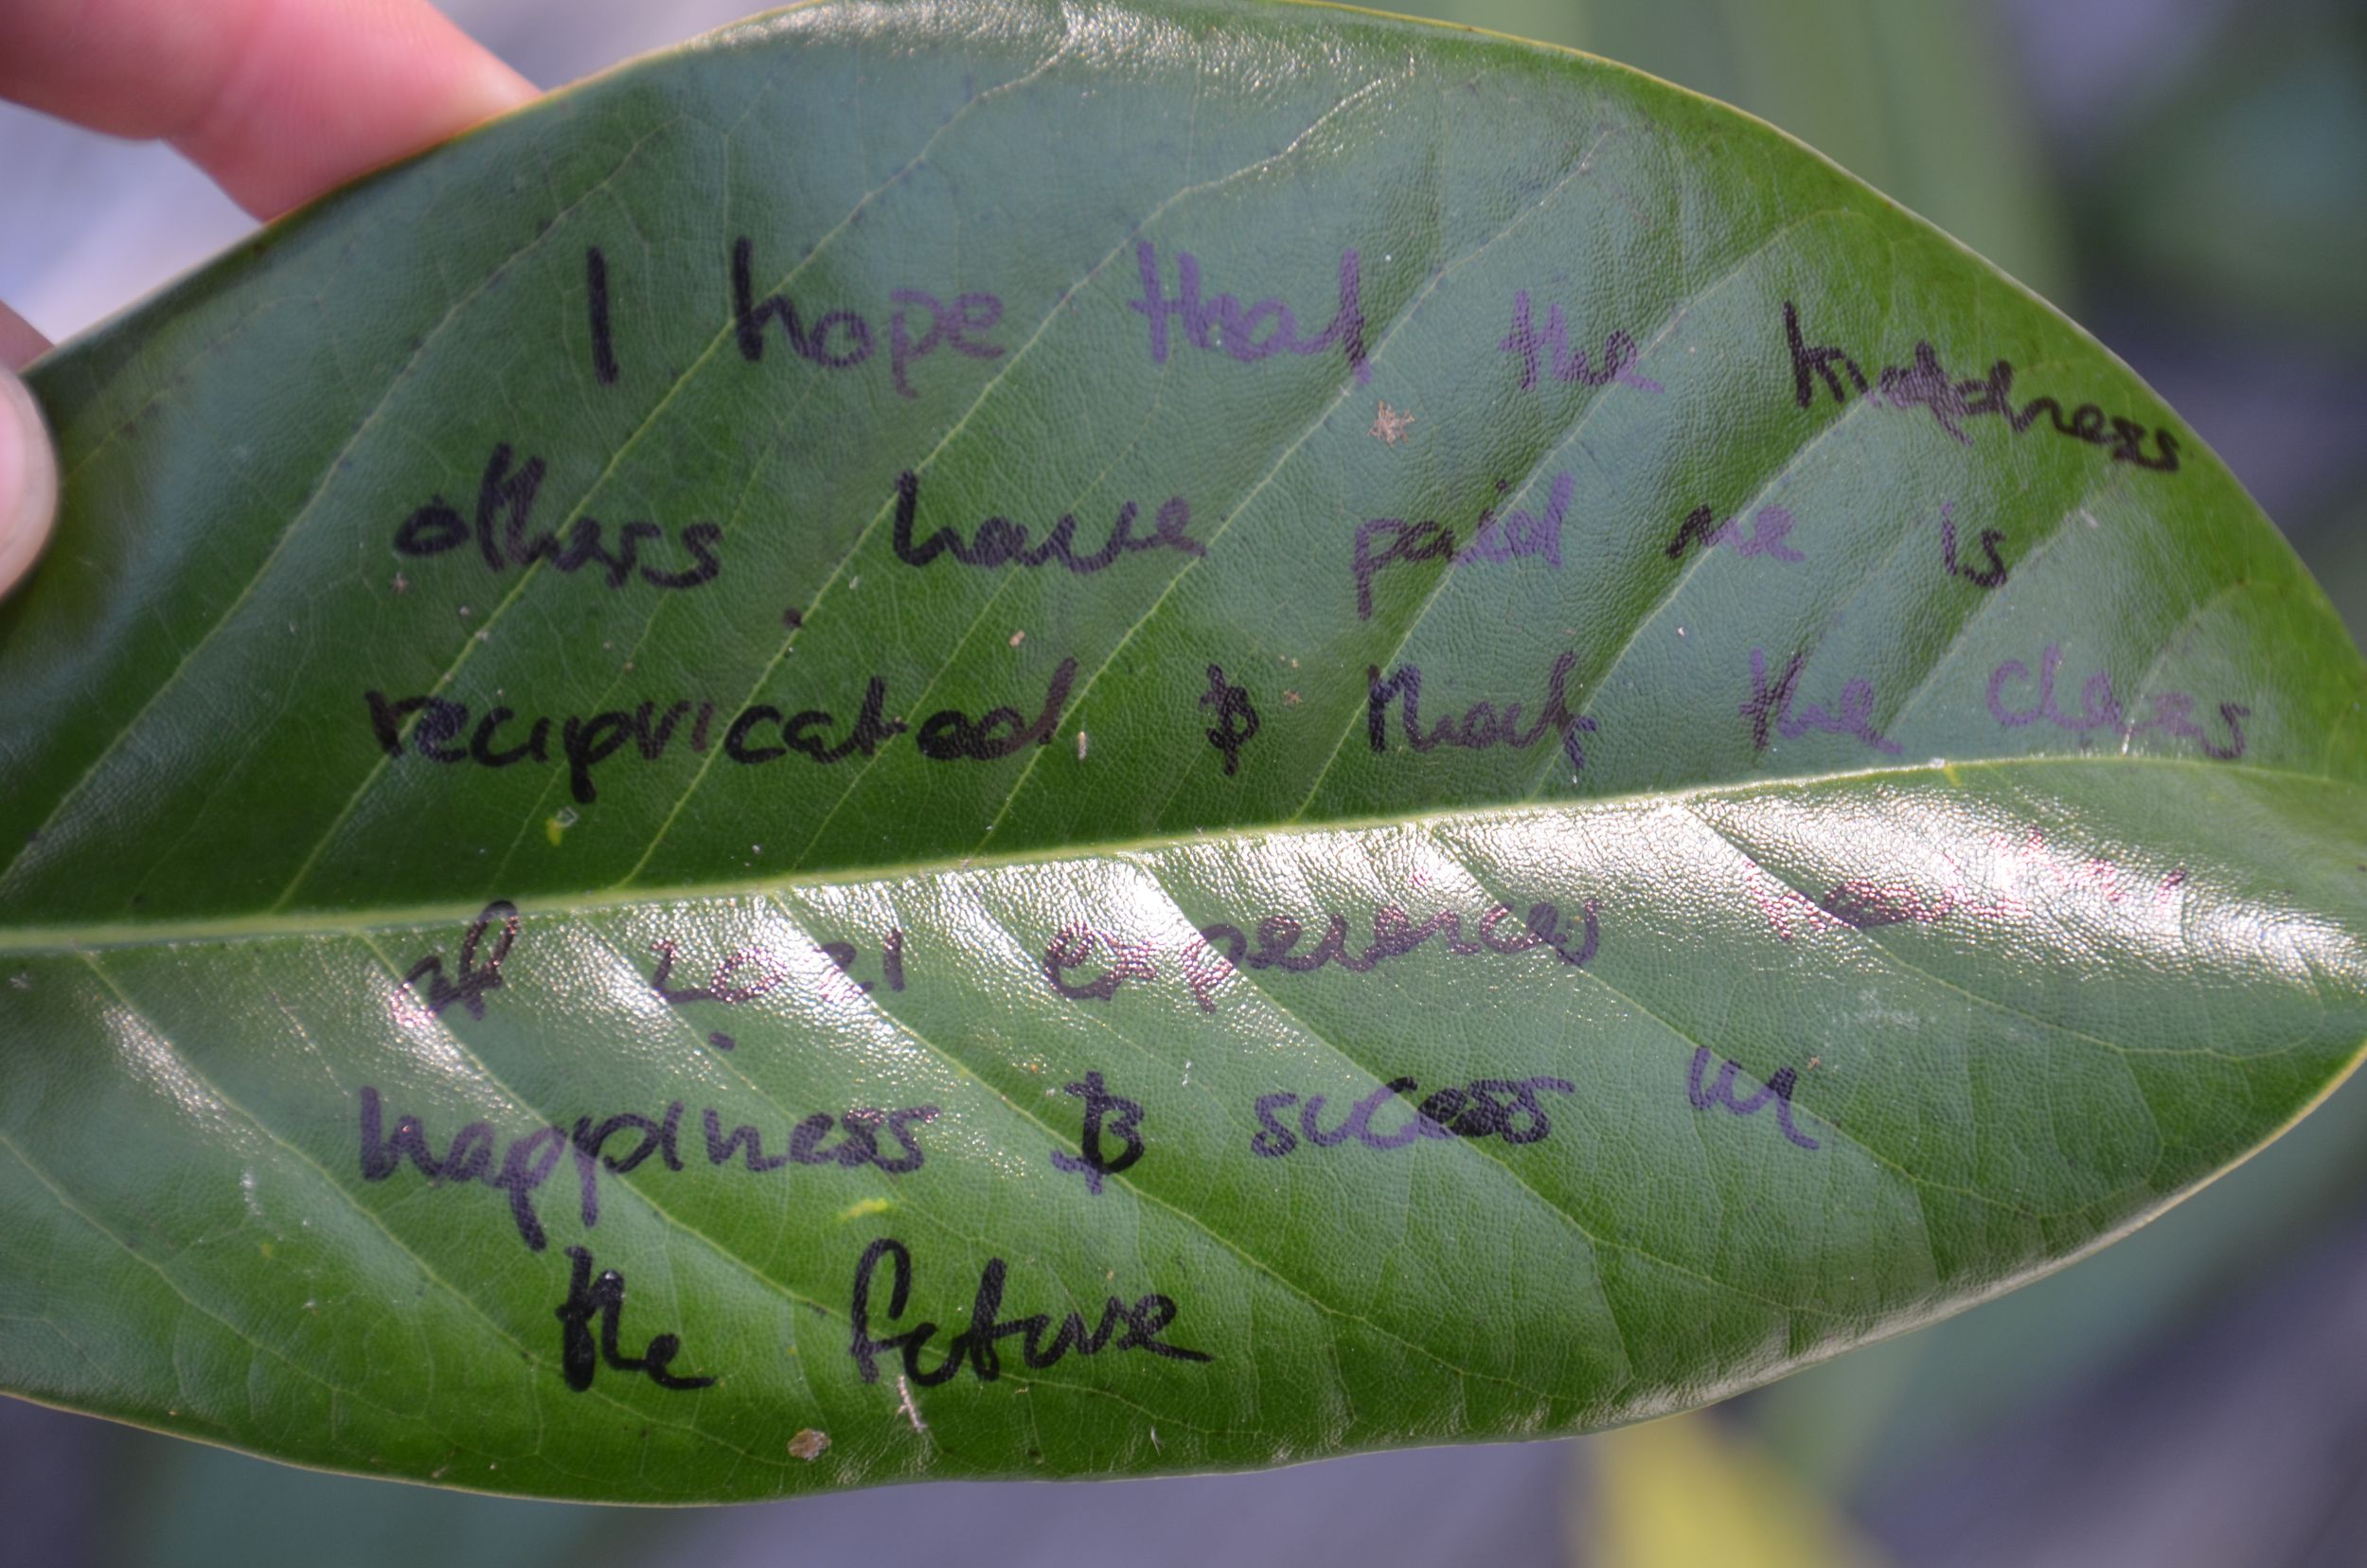 I hope that the kindness
others have paid me is
recipricated & that the class
of 2021 experiences
happiness & sucess in
the future